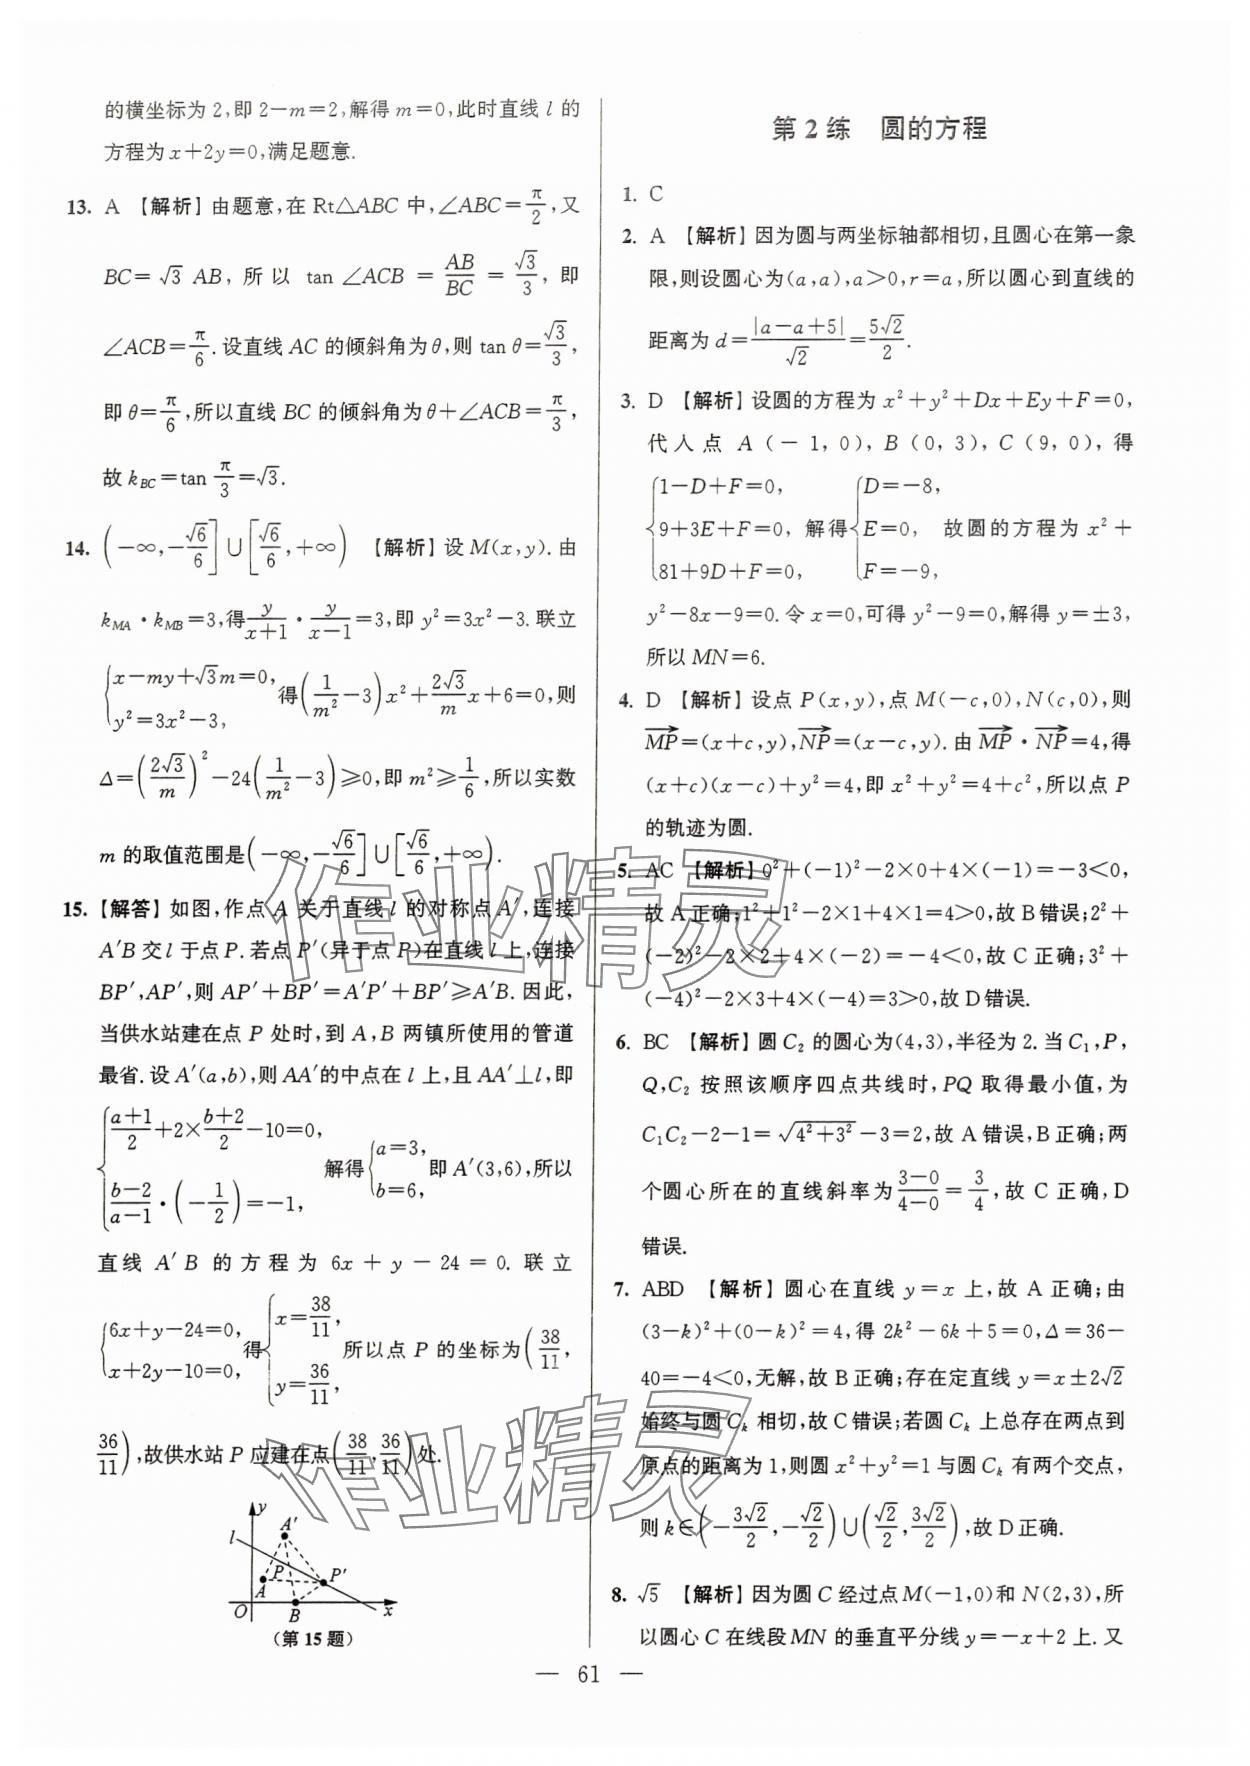 的横坐标为 2,即 2－m＝2,解得 m＝0,此时直线 l 的
方程为 x＋2y＝0,满足题意.
13. A 【解析】由题意,在 Rt△ABC 中,∠ABC＝π/2,又
BC＝√3 AB,所以 tan ∠ACB ＝ AB/BC ＝ √3/3,即
∠ACB＝π/6.设直线 AC 的倾斜角为 θ,则 tan θ＝√3/3,
即 θ＝π/6,所以直线 BC 的倾斜角为 θ＋∠ACB＝π/3,
故 k_BC＝tan π/3＝√3.
14. (－∞,－√6/6]∪[√6/6,＋∞) 【解析】设 M(x,y).由
k_MA·k_MB＝3,得 y/(x＋1)·y/(x－1)＝3,即 y²＝3x²－3.联立
{x－my＋√3m＝0, y²＝3x²－3, 得(1/m²－3)x²＋(2√3/m)x＋6＝0,则
Δ＝(2√3/m)²－24(1/m²－3)≥0,即 m²≥1/6,所以实数
m 的取值范围是(－∞,－√6/6]∪[√6/6,＋∞).
15. 【解答】如图,作点 A 关于直线 l 的对称点 A′,连接
A′B 交 l 于点 P.若点 P′(异于点 P)在直线 l 上,连接
BP′,AP′,则 AP′＋BP′＝A′P′＋BP′≥A′B.因此,
当供水站建在点 P 处时,到 A,B 两镇所使用的管道
最省.设 A′(a,b),则AA′的中点在 l 上,且 AA′⊥l,即
{(a＋1)/2＋2×(b＋2)/2－10＝0, (b－2)/(a－1)·(－1/2)＝－1, 解得{a＝3, b＝6, 即 A′(3,6),所以
直线 A′B 的方程为 6x＋y－24＝0.联立
{6x＋y－24＝0, x＋2y－10＝0, 得{x＝38/11, y＝36/11, 所以点 P 的坐标为(38/11,
36/11),故供水站 P 应建在点(38/11,36/11)处.
y
A′
l
P
P′
A
O
B
x
(第 15 题)
第 2 练 圆的方程
1. C
2. A 【解析】因为圆与两坐标轴都相切,且圆心在第一象
限,则设圆心为(a,a),a＞0,r＝a,所以圆心到直线的
距离为 d＝|a－a＋5|/√2＝5√2/2.
3. D 【解析】设圆的方程为 x²＋y²＋Dx＋Ey＋F＝0,
代入点 A(－1,0),B(0,3),C(9,0),得
{1－D＋F＝0, 9＋3E＋F＝0, 81＋9D＋F＝0, 解得{D＝－8, E＝0, F＝－9, 故圆的方程为 x²＋
y²－8x－9＝0.令 x＝0,可得 y²－9＝0,解得 y＝±3,
所以 MN＝6.
4. D 【解析】设点 P(x,y),点 M(－c,0),N(c,0),则
MP→＝(x＋c,y),NP→＝(x－c,y).由 MP→·NP→＝4,得
(x＋c)(x－c)＋y²＝4,即 x²＋y²＝4＋c²,所以点 P
的轨迹为圆.
5. AC 【解析】0²＋(－1)²－2×0＋4×(－1)＝－3＜0,
故 A 正确;1²＋1²－2×1＋4×1＝4＞0,故 B 错误;2²＋
(－2)²－2×2＋4×(－2)＝－4＜0,故 C 正确;3²＋
(－4)²－2×3＋4×(－4)＝3＞0,故 D 错误.
6. BC 【解析】圆 C₂ 的圆心为(4,3),半径为 2.当 C₁,P,
Q,C₂ 按照该顺序四点共线时,PQ 取得最小值,为
C₁C₂－2－1＝√(4²＋3²)－3＝2,故 A 错误,B 正确;两
个圆心所在的直线斜率为(3－0)/(4－0)＝3/4,故 C 正确,D
错误.
7. ABD 【解析】圆心在直线 y＝x 上,故 A 正确;由
(3－k)²＋(0－k)²＝4,得 2k²－6k＋5＝0,Δ＝36－
40＝－4＜0,无解,故 B 正确;存在定直线 y＝x±2√2
始终与圆 Cₖ 相切,故 C 错误;若圆 Cₖ 上总存在两点到
原点的距离为 1,则圆 x²＋y²＝1 与圆 Cₖ 有两个交点,
则 k∈(－3√2/2,－√2/2)∪(√2/2,3√2/2),故 D 正确.
8. √5 【解析】因为圆 C 经过点 M(－1,0)和 N(2,3),所
以圆心 C 在线段 MN 的垂直平分线 y＝－x＋2 上.又
— 61 —
作业精灵
作业精灵